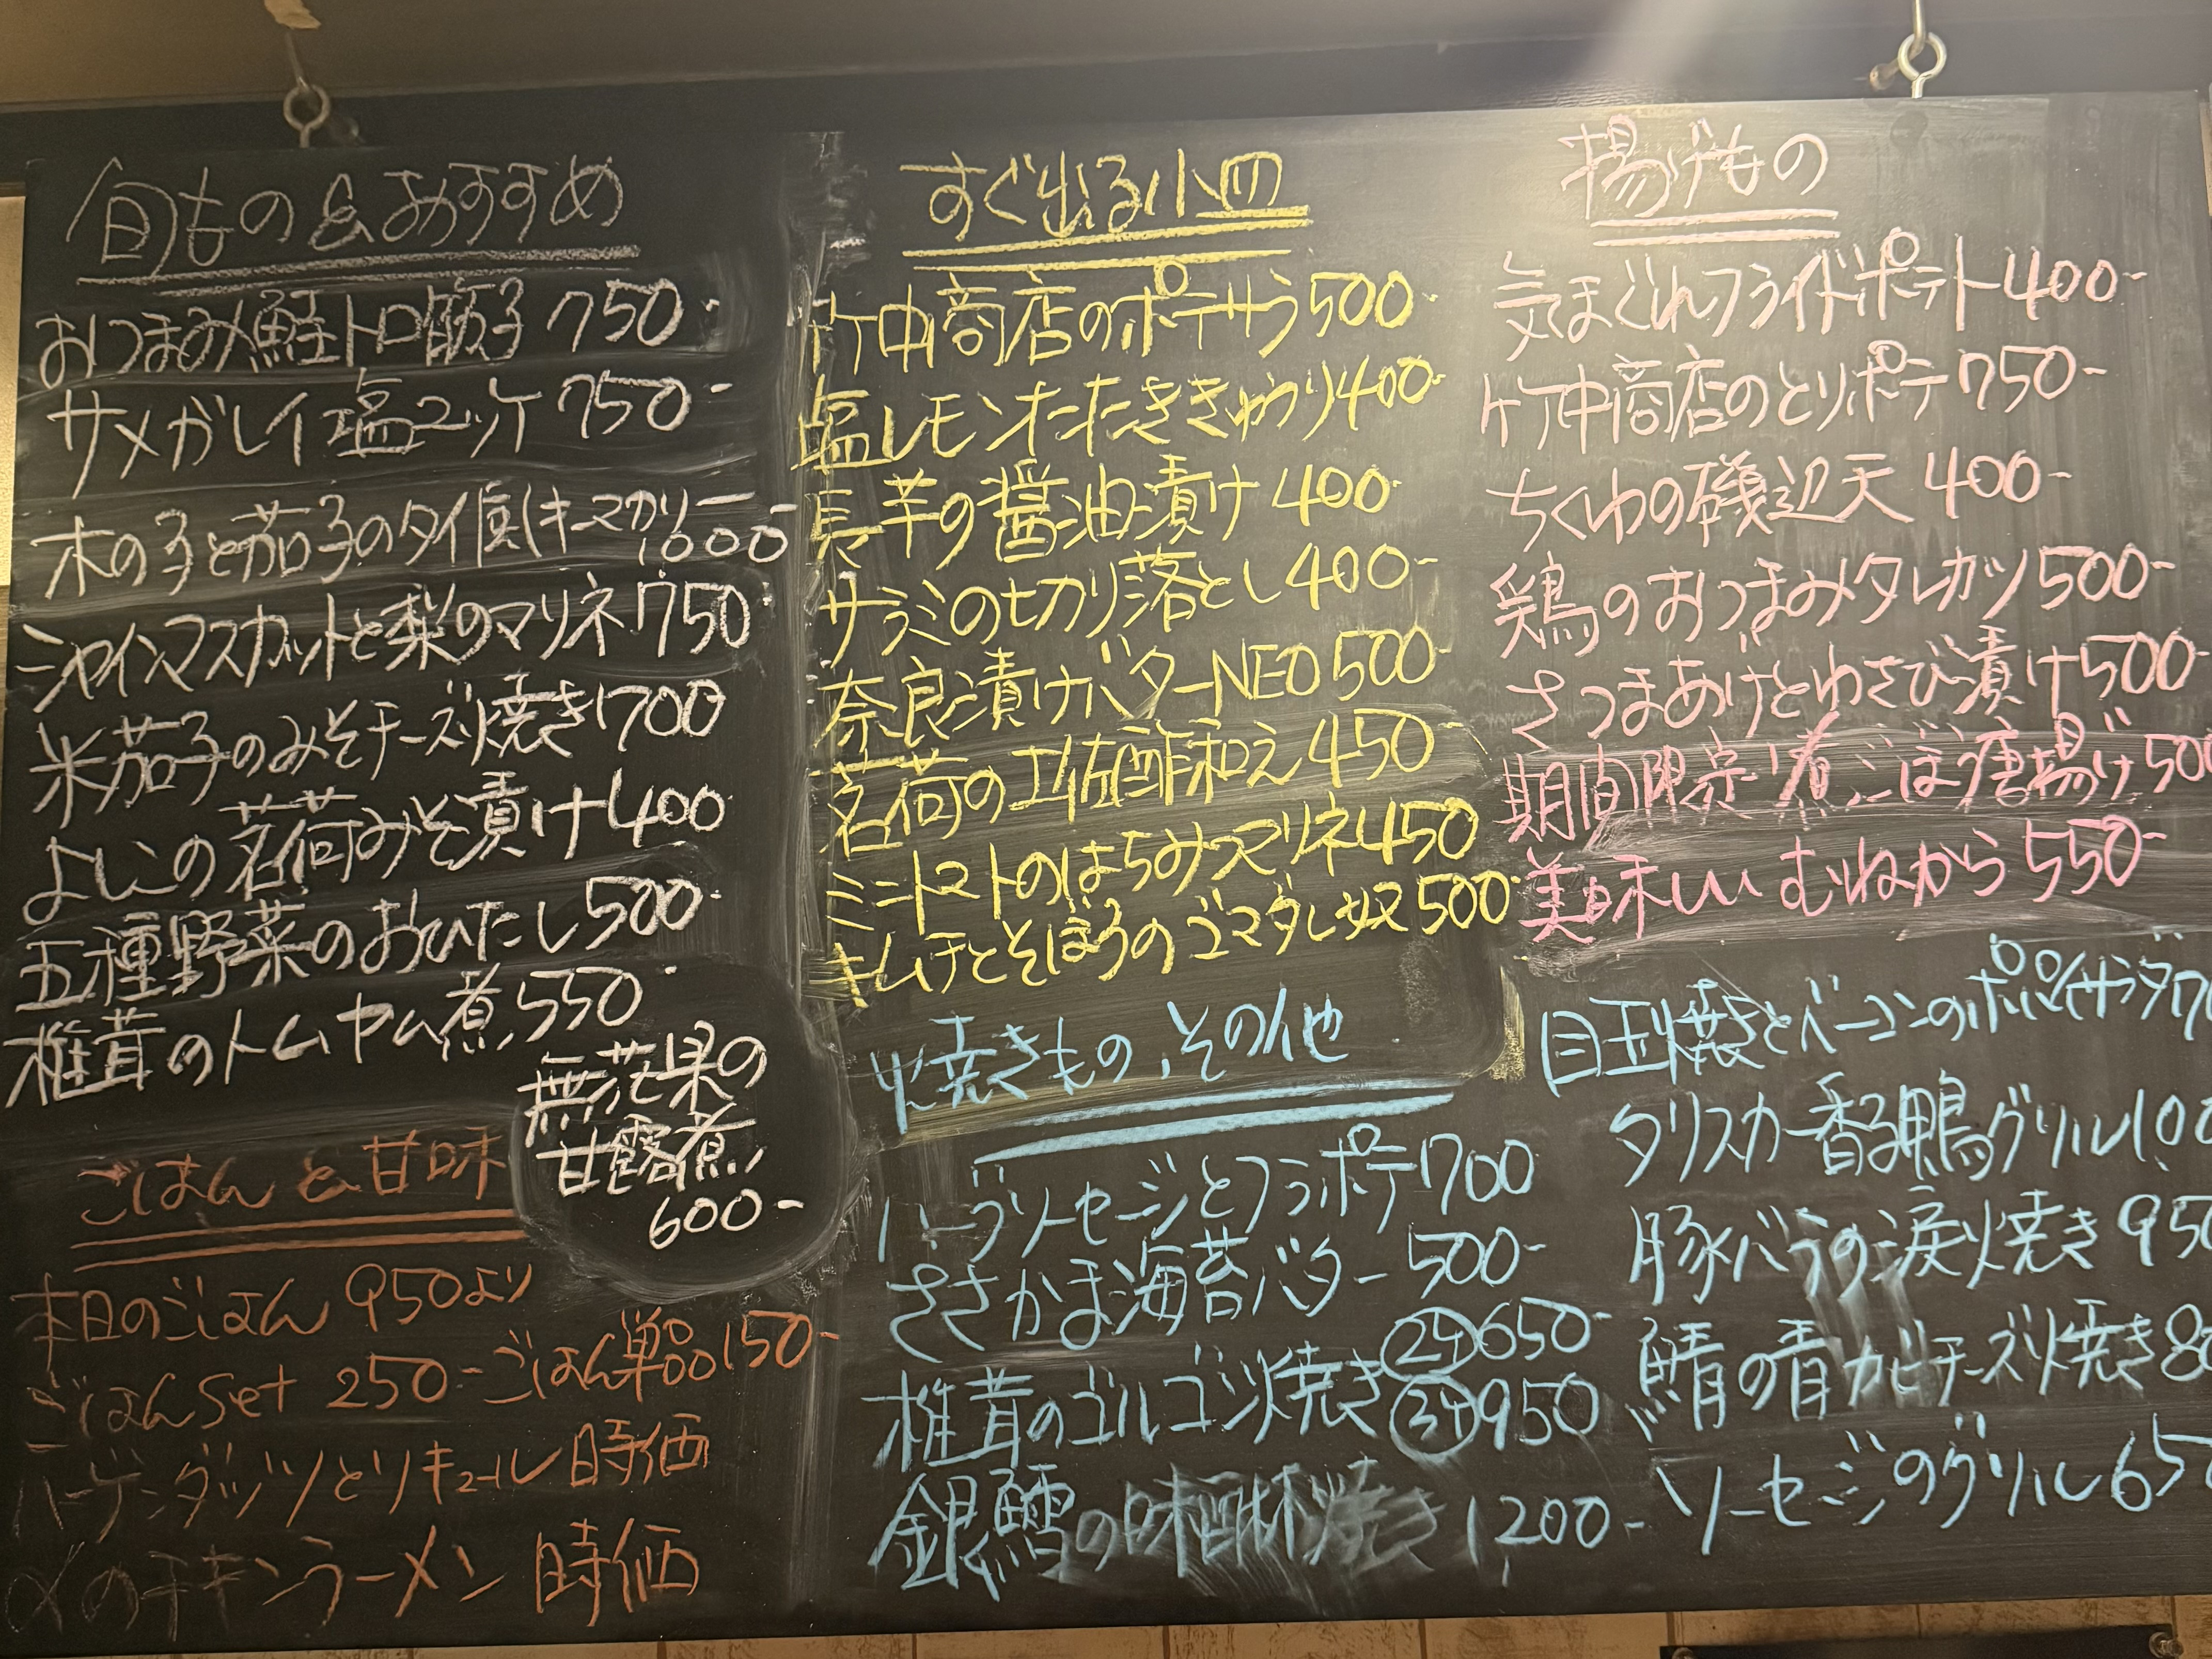 旬もの&おすすめ
おつまみ鮭トロ筋子 750-
サメガレイ塩ユッケ 750-
木の子と茄子のタイ風キーマカリー
1000-
シャインマスカットと梨のマリネ 750-
米茄子のみそチーズ焼き 700
よしこの茗荷みそ漬け 400
五種野菜のおひたし 500-
椎茸のトムヤム煮 550-
無花果の
甘露煮
600-
ごはん&甘味
本日のごはん 950より
ごはんset 250- ごはん単品 150-
ハーゲンダッツとリキュール 時価
〆のチキンラーメン 時価
すぐ出る小皿
竹中商店のポテサラ 500-
塩レモンオータたききゅうり 400-
長芋の醤油漬け 400-
サラミの切り落とし 400-
奈良漬けバターNEO 500-
茗荷の土佐酢和え 450-
ミニトマトのはちみつマリネ 450
キムチとそぼろのゴマダレ奴 500-
焼きもの、その他
ハーブソーセージとフラポテ 700
ささかま海苔バター 500-
椎茸のゴルゴンゾ焼き ②ケ 650-
③ケ 950
銀鱈の味醂焼き 1200-
揚げもの
気まぐれフライドポテト 400-
竹中商店のとりポテ 750-
ちくわの磯辺天 400-
鶏のおつまみタレカツ 500-
さつまあげとわさび漬け 500-
期間限定 煮ごぼう唐揚げ 500
美味しいむねから 550-
目玉焼きとベーコンのポパイサラダ
タリスカー香る鴨グリル
豚バラの炭火焼き 950
鯖の青カビチーズ焼き
ソーセージのグリル 650